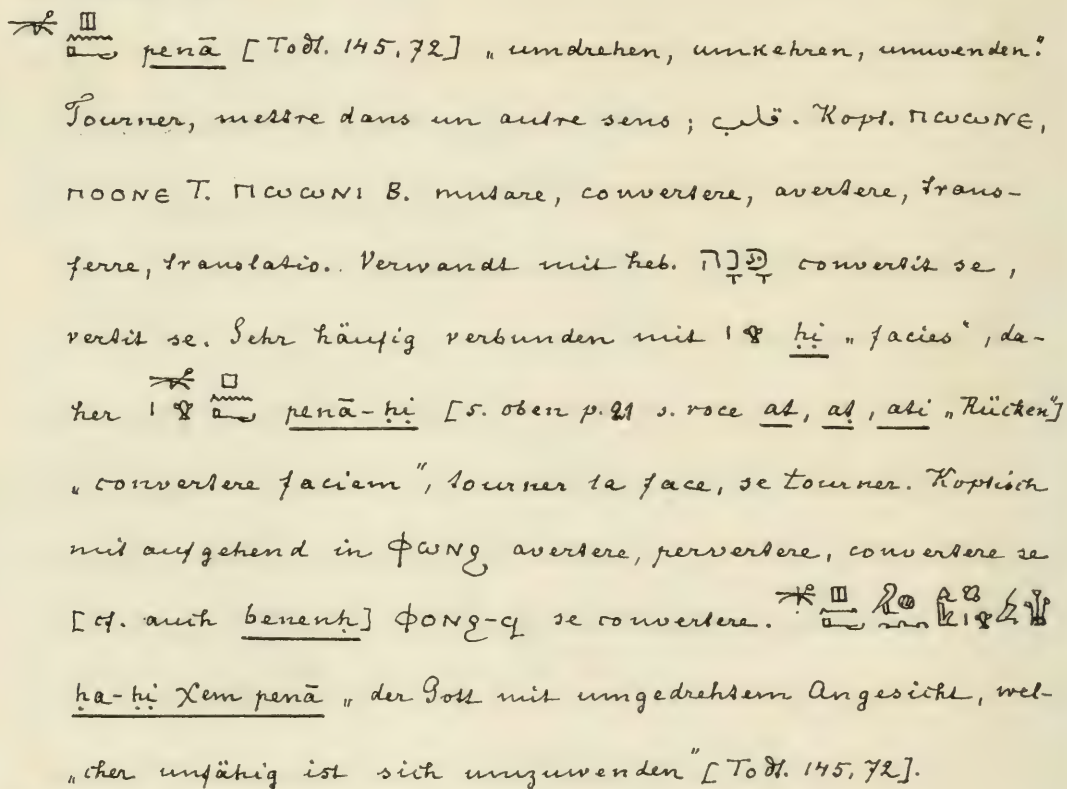 penā [Todt. 145, 72] „umdrehen, umkehren, umwenden“.
Tourner, mettre dans un autre sens; قلب. Kopt. ⲡⲱⲱⲛⲉ,
ⲡⲟⲟⲛⲉ T. ⲡⲱⲱⲛⲓ B. mutare, convertere, avertere, trans-
ferre, translatio. Verwandt mit heb. פָּנָה convertit se,
vertit se. Sehr häufig verbunden mit ḥi „facies“, da-
her penā-ḥi [s. oben p. 21 s. voce at, aṭ, ati „Rücken“]
„convertere faciem“, tourner la face, se tourner. Koptisch
mit aufgehend in ⲫⲱⲛϩ avertere, pervertere, convertere se
[cf. auch benenḥ] ⲫⲟⲛϩ-ϥ se convertere.
ḥa-ḥi Xem penā „der Gott mit umgedrehtem Angesicht, wel-
„cher unfähig ist sich umzuwenden“ [Todt. 145, 72].